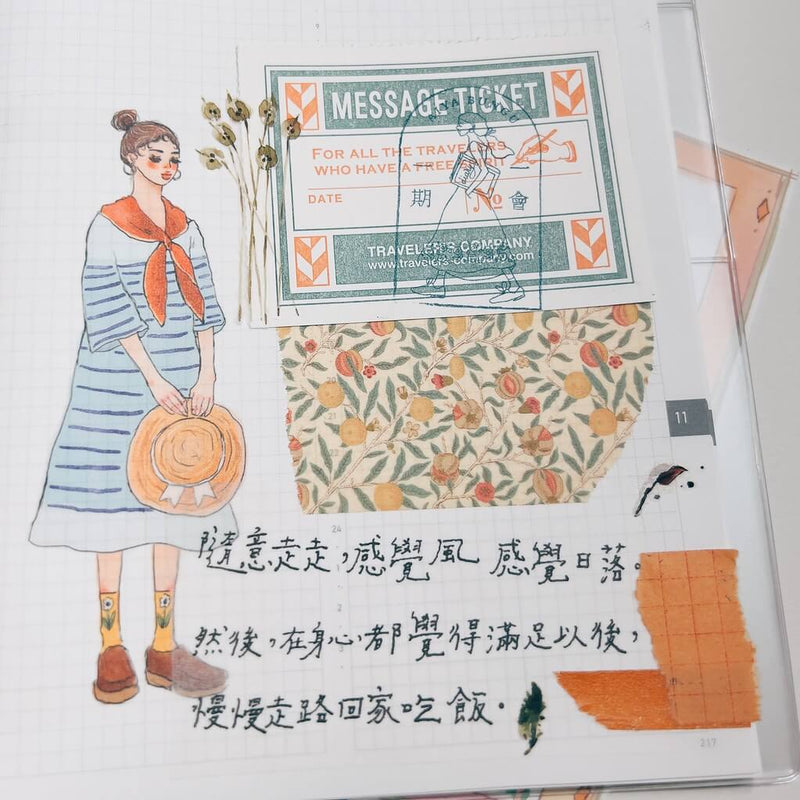 MESSAGE TICKET
FOR ALL THE TRAVELERS
WHO HAVE A FREE SPIRIT
DATE 期 No 會
TRAVELER'S COMPANY
www.travelers-company.com
11
24
隨意走走，感覺風 感覺日落。
然後，在身心都覺得滿足以後，
慢慢走路回家吃飯。
217